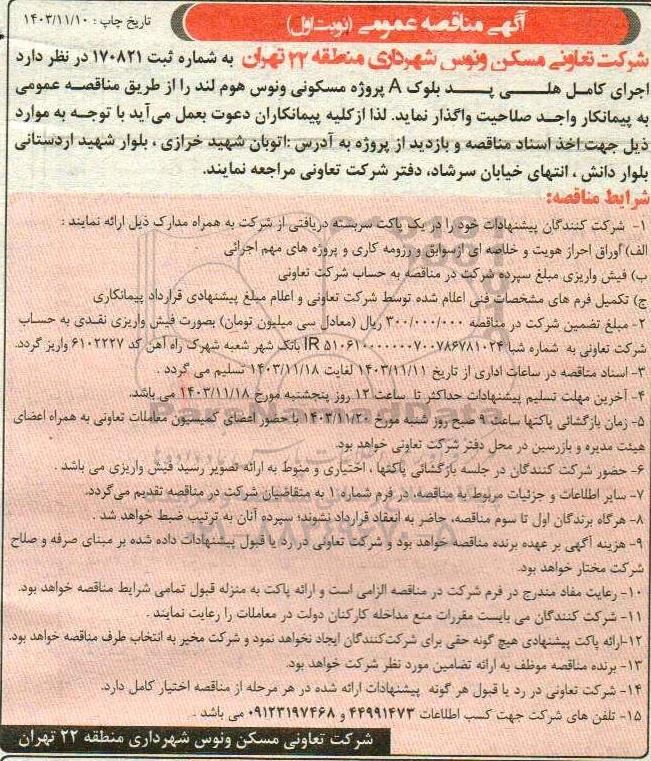 آگهی مناقصه عمومی (نوبت اول)
تاریخ چاپ : ۱۴۰۳/۱۱/۱۰
شرکت تعاونی مسکن ونوس شهرداری منطقه ۲۲ تهران به شماره ثبت ۱۷۰۸۲۱ در نظر دارد
اجرای کامل هلـــی پـــد بلوک A پروژه مسکونی ونوس هوم لند را از طریق مناقصه عمومی
به پیمانکار واجد صلاحیت واگذار نماید. لذا ازکلیه پیمانکاران دعوت بعمل می‌آید با توجه به موارد
ذیل جهت اخذ اسناد مناقصه و بازدید از پروژه به آدرس :اتوبان شهید خرازی ، بلوار شهید اردستانی
بلوار دانش ، انتهای خیابان سرشاد، دفتر شرکت تعاونی مراجعه نمایند.
شرایط مناقصه:
۱- شرکت کنندگان پیشنهادات خود را در یک پاکت سربسته دریافتی از شرکت به همراه مدارک ذیل ارائه نمایند :
الف) اوراق احراز هویت و خلاصه ای ازسوابق و رزومه کاری و پروژه های مهم اجرائی
ب) فیش واریزی مبلغ سپرده شرکت در مناقصه به حساب شرکت تعاونی
ج) تکمیل فرم های مشخصات فنی اعلام شده توسط شرکت تعاونی و اعلام مبلغ پیشنهادی قرارداد پیمانکاری
۲- مبلغ تضمین شرکت در مناقصه ۳۰۰/۰۰۰/۰۰۰ ریال (معادل سی میلیون تومان) بصورت فیش واریزی نقدی به حساب
شرکت تعاونی به شماره شبا IR ۵۱۰۶۱۰۰۰۰۰۰۰۷۰۰۷۸۶۷۸۱۰۲۴ بانک شهر شعبه شهرک راه آهن کد ۶۱۰۲۲۲۷ واریز گردد.
۳- اسناد مناقصه در ساعات اداری از تاریخ ۱۴۰۳/۱۱/۱۱ لغایت ۱۴۰۳/۱۱/۱۸ تسلیم می گردد .
۴- آخرین مهلت تسلیم پیشنهادات حداکثر تا ساعت ۱۲ روز پنجشنبه مورخ ۱۴۰۳/۱۱/۱۸ می باشد.
۵- زمان بازگشائی پاکتها ساعت ۹ صبح روز شنبه مورخ ۱۴۰۳/۱۱/۲۰ با حضور اعضای کمیسیون معاملات تعاونی به همراه اعضای
هیئت مدیره و بازرسین در محل دفتر شرکت تعاونی خواهد بود.
۶- حضور شرکت کنندگان در جلسه بازگشائی پاکتها ، اختیاری و منوط به ارائه تصویر رسید فیش واریزی می باشد .
۷- سایر اطلاعات و جزئیات مربوط به مناقصه، در فرم شماره ۱ به متقاضیان شرکت در مناقصه تقدیم می‌گردد.
۸- هرگاه برندگان اول تا سوم مناقصه، حاضر به انعقاد قرارداد نشوند؛ سپرده آنان به ترتیب ضبط خواهد شد .
۹- هزینه آگهی بر عهده برنده مناقصه خواهد بود و شرکت تعاونی در رد یا قبول پیشنهادات داده شده بر مبنای صرفه و صلاح
شرکت مختار خواهد بود.
۱۰- رعایت مفاد مندرج در فرم شرکت در مناقصه الزامی است و ارائه پاکت به منزله قبول تمامی شرایط مناقصه خواهد بود.
۱۱- شرکت کنندگان می بایست مقررات منع مداخله کارکنان دولت در معاملات را رعایت نمایند .
۱۲-ارائه پاکت پیشنهادی هیچ گونه حقی برای شرکت‌کنندگان ایجاد نخواهد نمود و شرکت مخیر به انتخاب طرف مناقصه خواهد بود.
۱۳- برنده مناقصه موظف به ارائه تضامین مورد نظر شرکت خواهد بود.
۱۴- شرکت تعاونی در رد یا قبول هر گونه پیشنهادات ارائه شده در هر مرحله از مناقصه اختیار کامل دارد.
۱۵- تلفن های شرکت جهت کسب اطلاعات ۴۴۹۹۱۴۷۳ و ۰۹۱۲۳۱۹۷۴۶۸ می باشد .
شرکت تعاونی مسکن ونوس شهرداری منطقه ۲۲ تهران
ParsNamadData